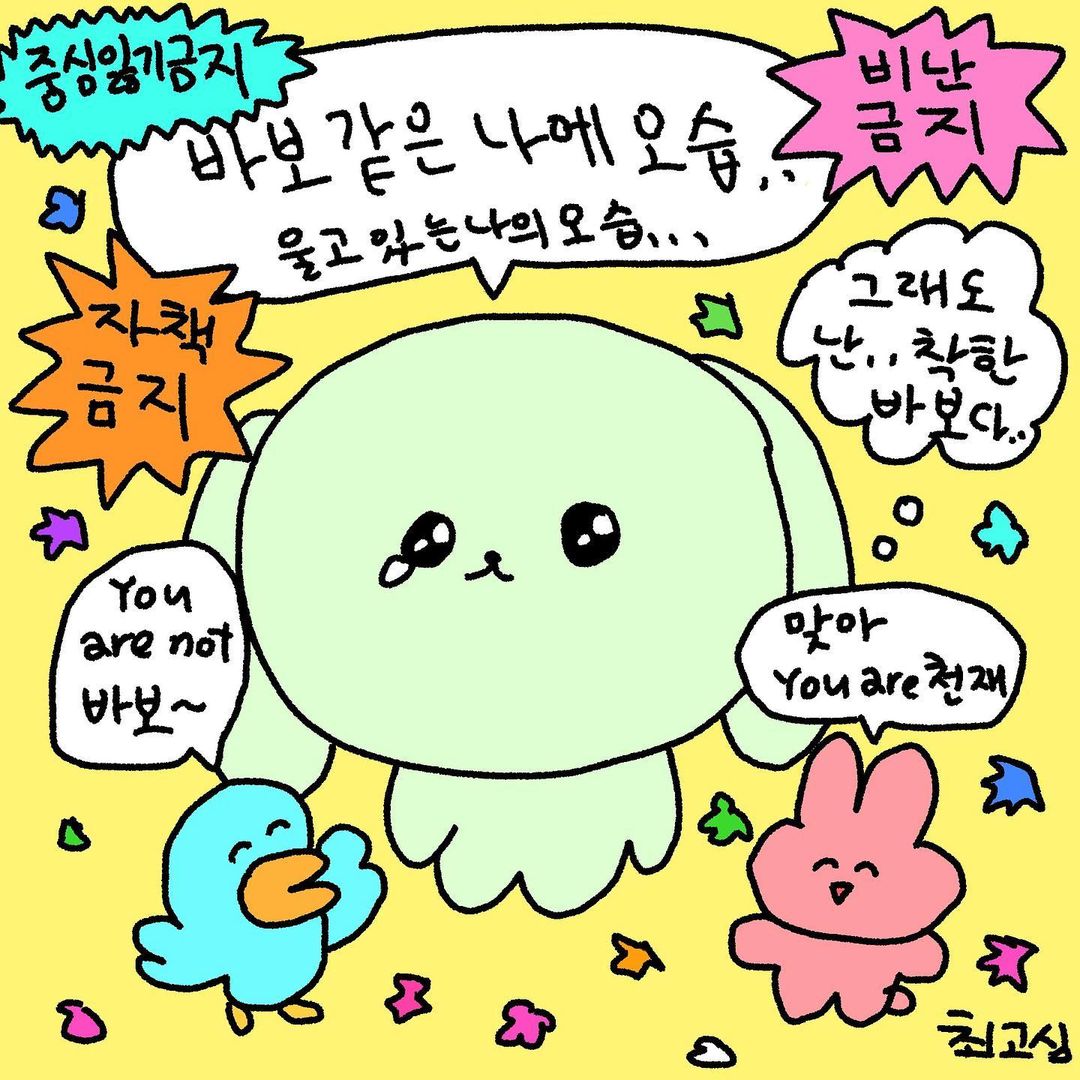 중심잃기금지
비난
금지
바보 같은 나에 모습..
울고 있는 나의 모습...
자책
금지
그래도
난.. 착한
바보다..
You
are not
바보~
맞아
You are 천재
최고심